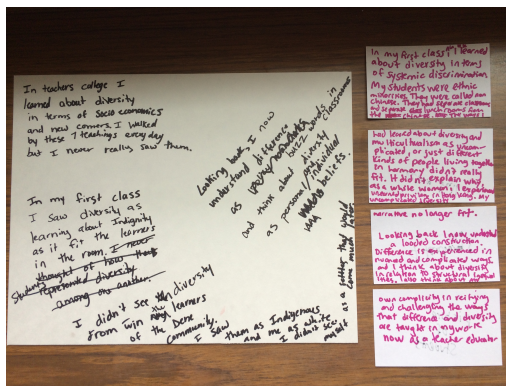 In teachers college I
learned about diversity
in terms of socio economics
and new comers. I walked
by these 7 teachings every day
but I never really saw them.
In my first class
I saw diversity as
learning about Indignity
as it fit the learners
in the room. I never
thought of how
Students represented diversity
among one another.
I didn't see the diversity
from within the learners
of the Dene
Community.
I saw them as Indigenous
and me as white
I didn't see
myself
as a settler that would
come much later
Looking back, I now
understand difference
as
buzz words in
classrooms
and think about diversity
as personal/individual
beliefs.
In my first class I learned
about diversity in terms
of systemic discrimination
My students were ethnic
minorities. They were called non
Chinese. They had separate classrooms
and separate
had learned about diversity and
multiculturalism as uncom-
plicated, or just different
kinds of people living together
in harmony didn't really
fit. It didn't explain why
as a whole women, I experienced
in Hong Kong. My
narrative no longer fit.
Looking back I now understand
a loaded construction.
Difference is experienced in
nuanced and complicated ways
and I think about diversity
in relation to structural
I also think about my
own complicity in reifying
and challenging the ways
that difference and diversity
are taught in my work
now as a teacher educator